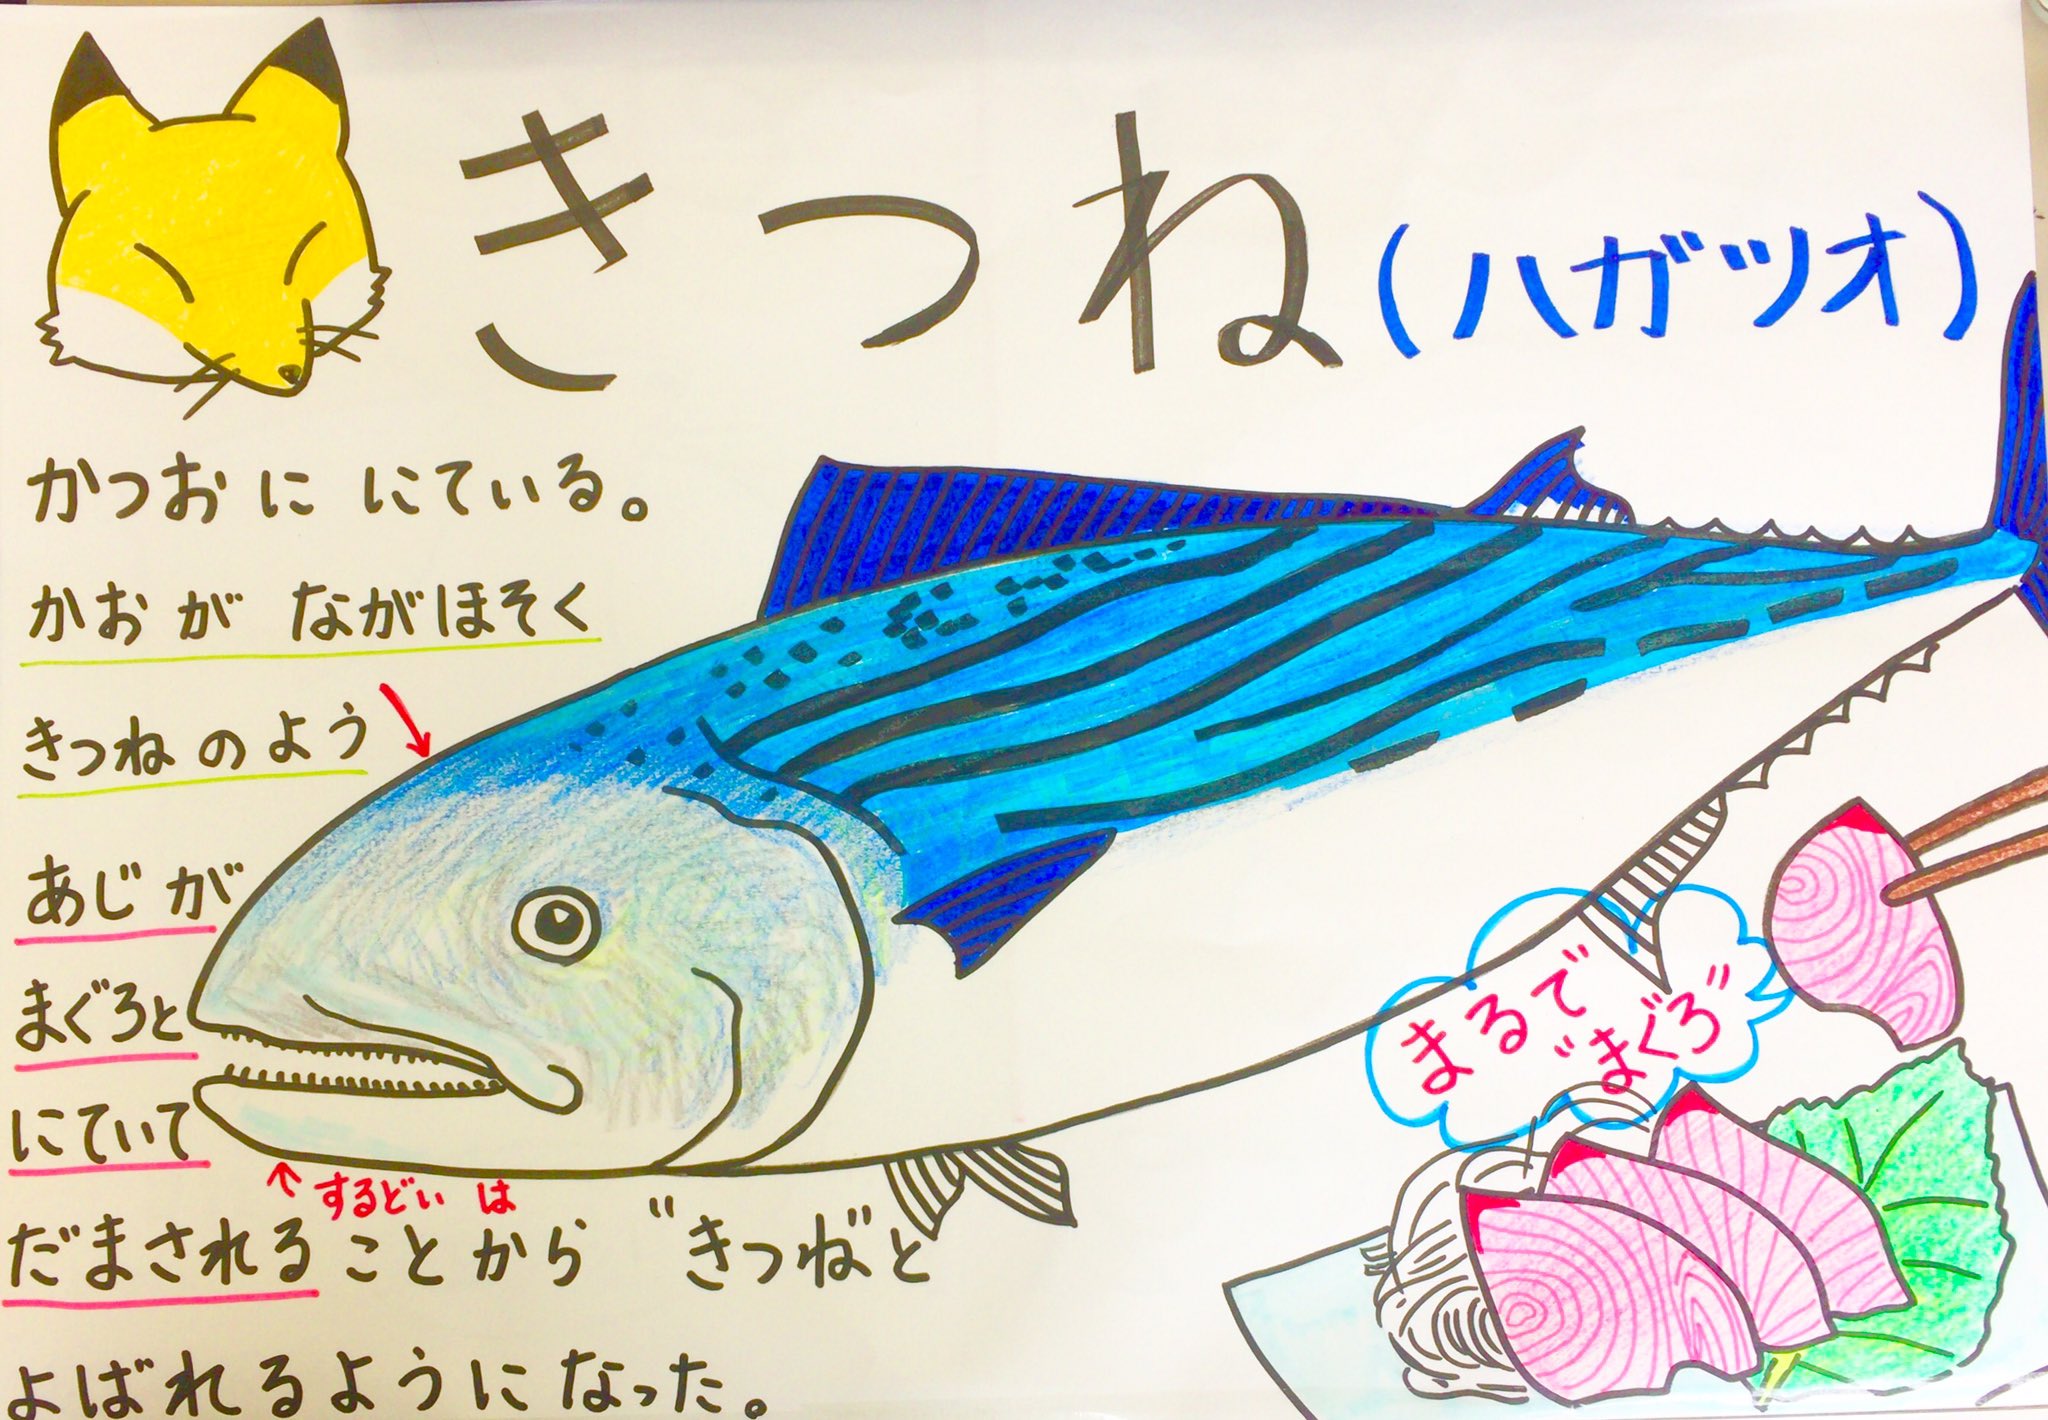 きつね(ハガツオ)
かつおに にている。
かおが ながほそく
きつねのよう
あじが
まぐろと
にていて
するどい は
だまされることから "きつね"と
よばれるようになった。
まるで
"まぐろ"